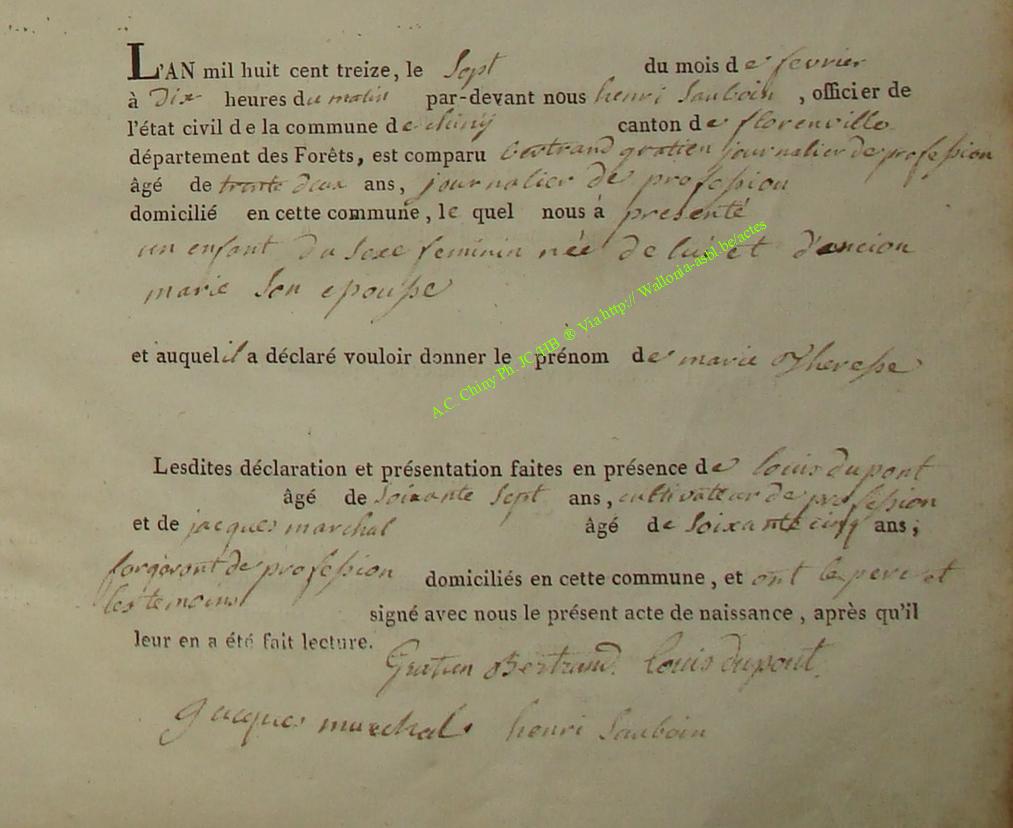 L'AN mil huit cent treize, le Sept du mois de fevrier
à Dix heures du matin par-devant nous henri Sauboin , officier de
l'état civil de la commune de chiny canton de florenville
département des Forêts, est comparu bertrand gratien journalier de profession
âgé de trente deux ans, journalier de profession
domicilié en cette commune, le quel nous à presenté
un enfant du Sexe feminin née de lui et d'ancion
marie Son epousse
et auquel il a déclaré vouloir donner le prénom de marie Theresse
A.C. Chiny Ph. JC HB ® Via http:// Wallonia-asbl.be/actes
Lesdites déclaration et présentation faites en présence de louis dupont
âgé de Soixante Sept ans, cultivateur de profession
et de jacques marchal âgé de Soixante cinq ans;
forgeront de profession domiciliés en cette commune, et ont le pere et
les temoins signé avec nous le présent acte de naissance, après qu'il
leur en a été fait lecture.
Gratien Bertrand. louis dupont.
Jacques marchal henri Sauboin